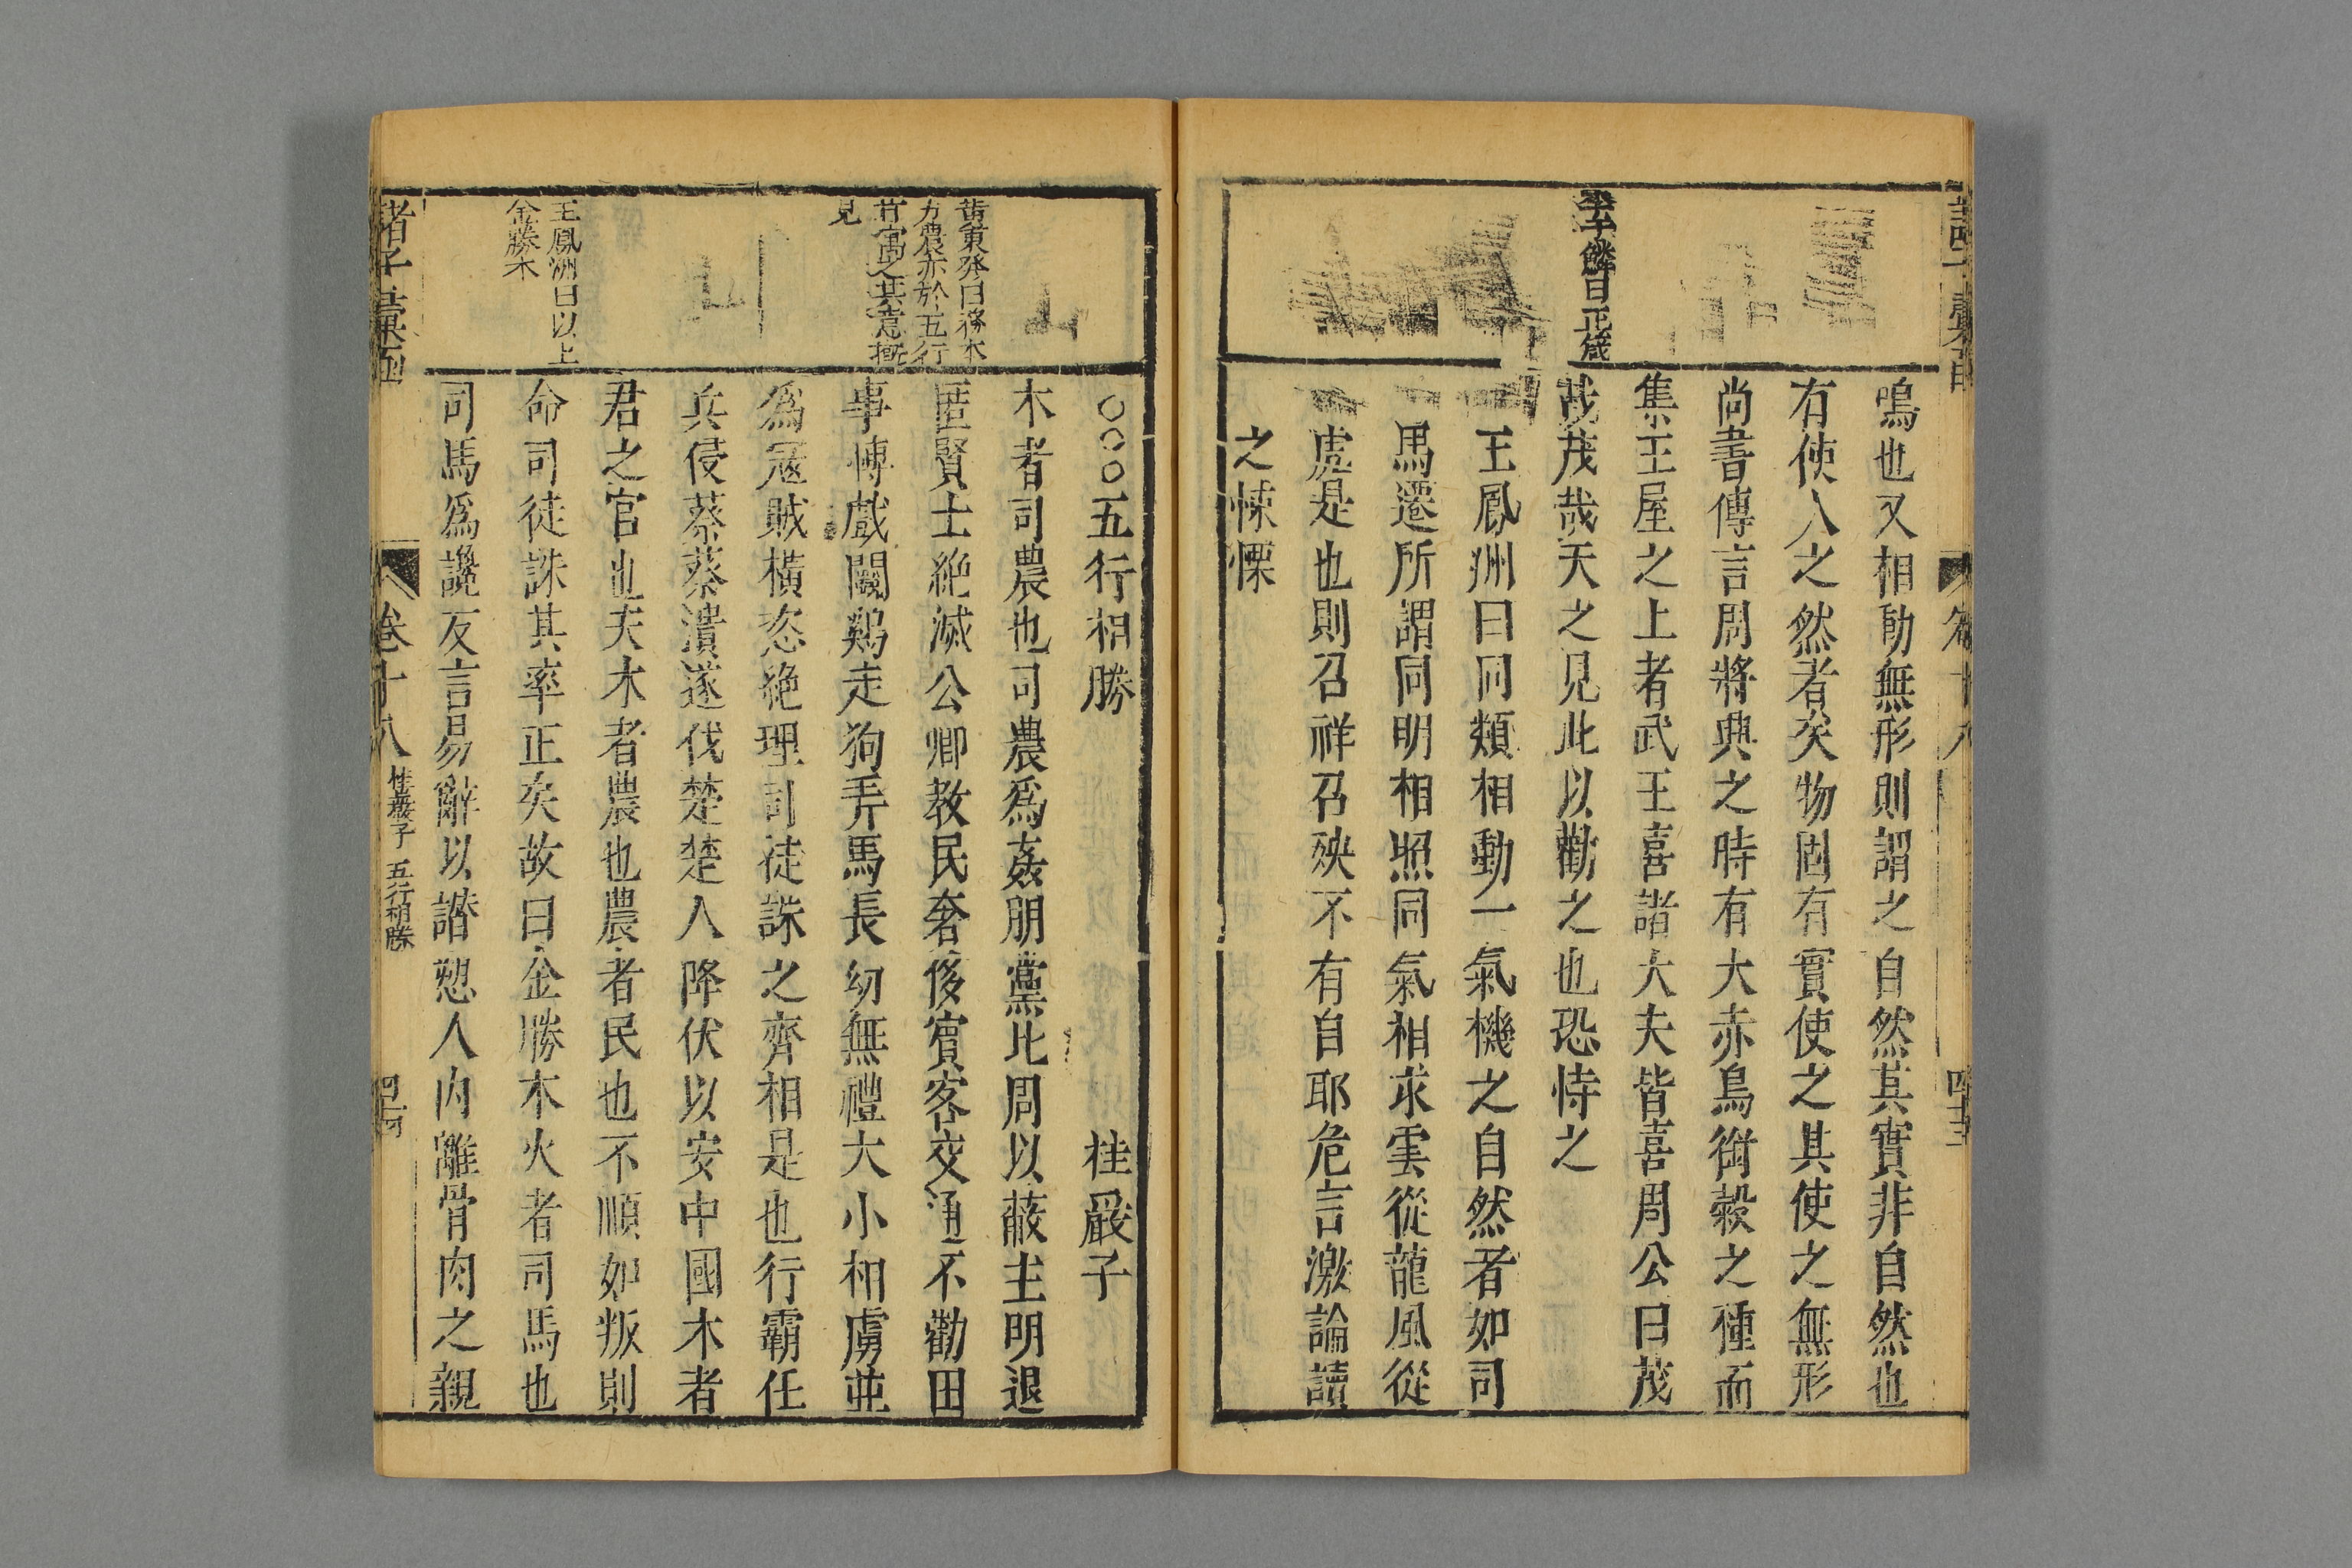 鳴也又相動無形則謂之自然其實非自然也
有使人之然者矣物固有實使之其使之無形
尚書傳言周將興之時有大赤烏銜榖之種而
集王屋之上者武王喜諸大夫皆喜周公曰茂
哉茂哉天之見此以勸之也恐恃之
王鳳洲曰同類相動一氣機之自然者如司
馬遷所謂同明相照同氣相求雲從龍風從
虎是也則召祥召殃不有自耶危言激論讀
之悚慄
李于鱗曰正箴
卷十八
四十三
○○○五行相勝
桂巖子
木者司農也司農爲姦朋黨比周以蔽主明退
匿賢士絶滅公卿教民奢侈賓客交通不勸田
事博戲鬬鷄走狗弄馬長幼無禮大小相虜並
爲冦賊橫恣絶理司徒誅之齊相是也行霸任
兵侵蔡蔡潰遂伐楚楚人降伏以安中國木者
君之官也夫木者農也農者民也不順如叛則
命司徒誅其率正矣故曰金勝木火者司馬也
司馬爲讒反言易辭以譖愬人内離骨肉之親
黄東發曰務本
力農亦於五行
中寓之其意槪
見
王鳳洲曰以上
金勝木
諸子彙函
卷十八
桂巖子
五行相勝